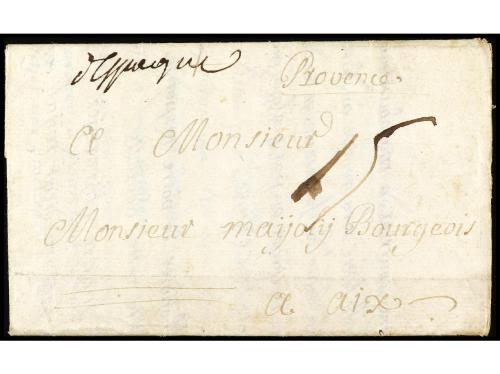 d'Espagne
Provence
A Monsieur
15
Monsieur maijoly Bourgeois
a aix